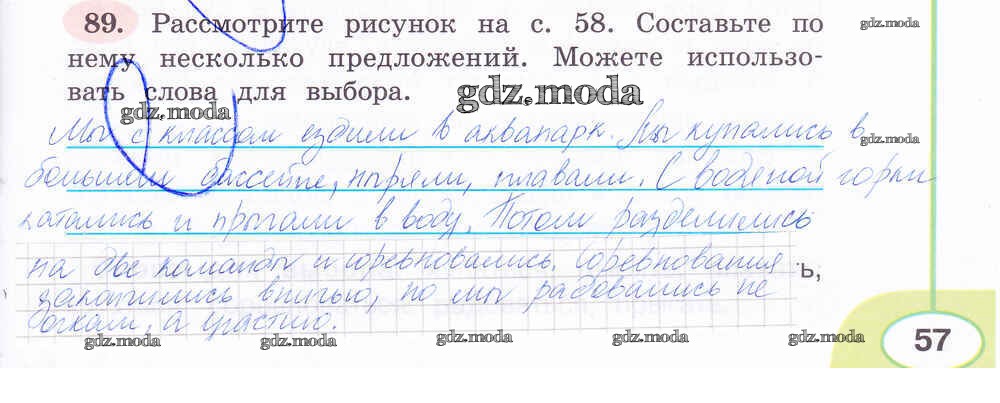 89. Рассмотрите рисунок на с. 58. Составьте по
gdz.moda
нему несколько предложений. Можете использо-
вать слова для выбора.
gdz.moda
gdz.moda
Мы с классом ездили в аквапарк. Мы купались в
gdz.moda
большом бассейне, ныряли, плавали. С водяной горки
катались и прыгали в воду. Потом разделились
на две команды и соревновались. Соревнования
ь,
закончились вничью, но мы радовались не
очкам, а участию.
gdz.moda
gdz.moda
gdz.moda
gdz.moda
57